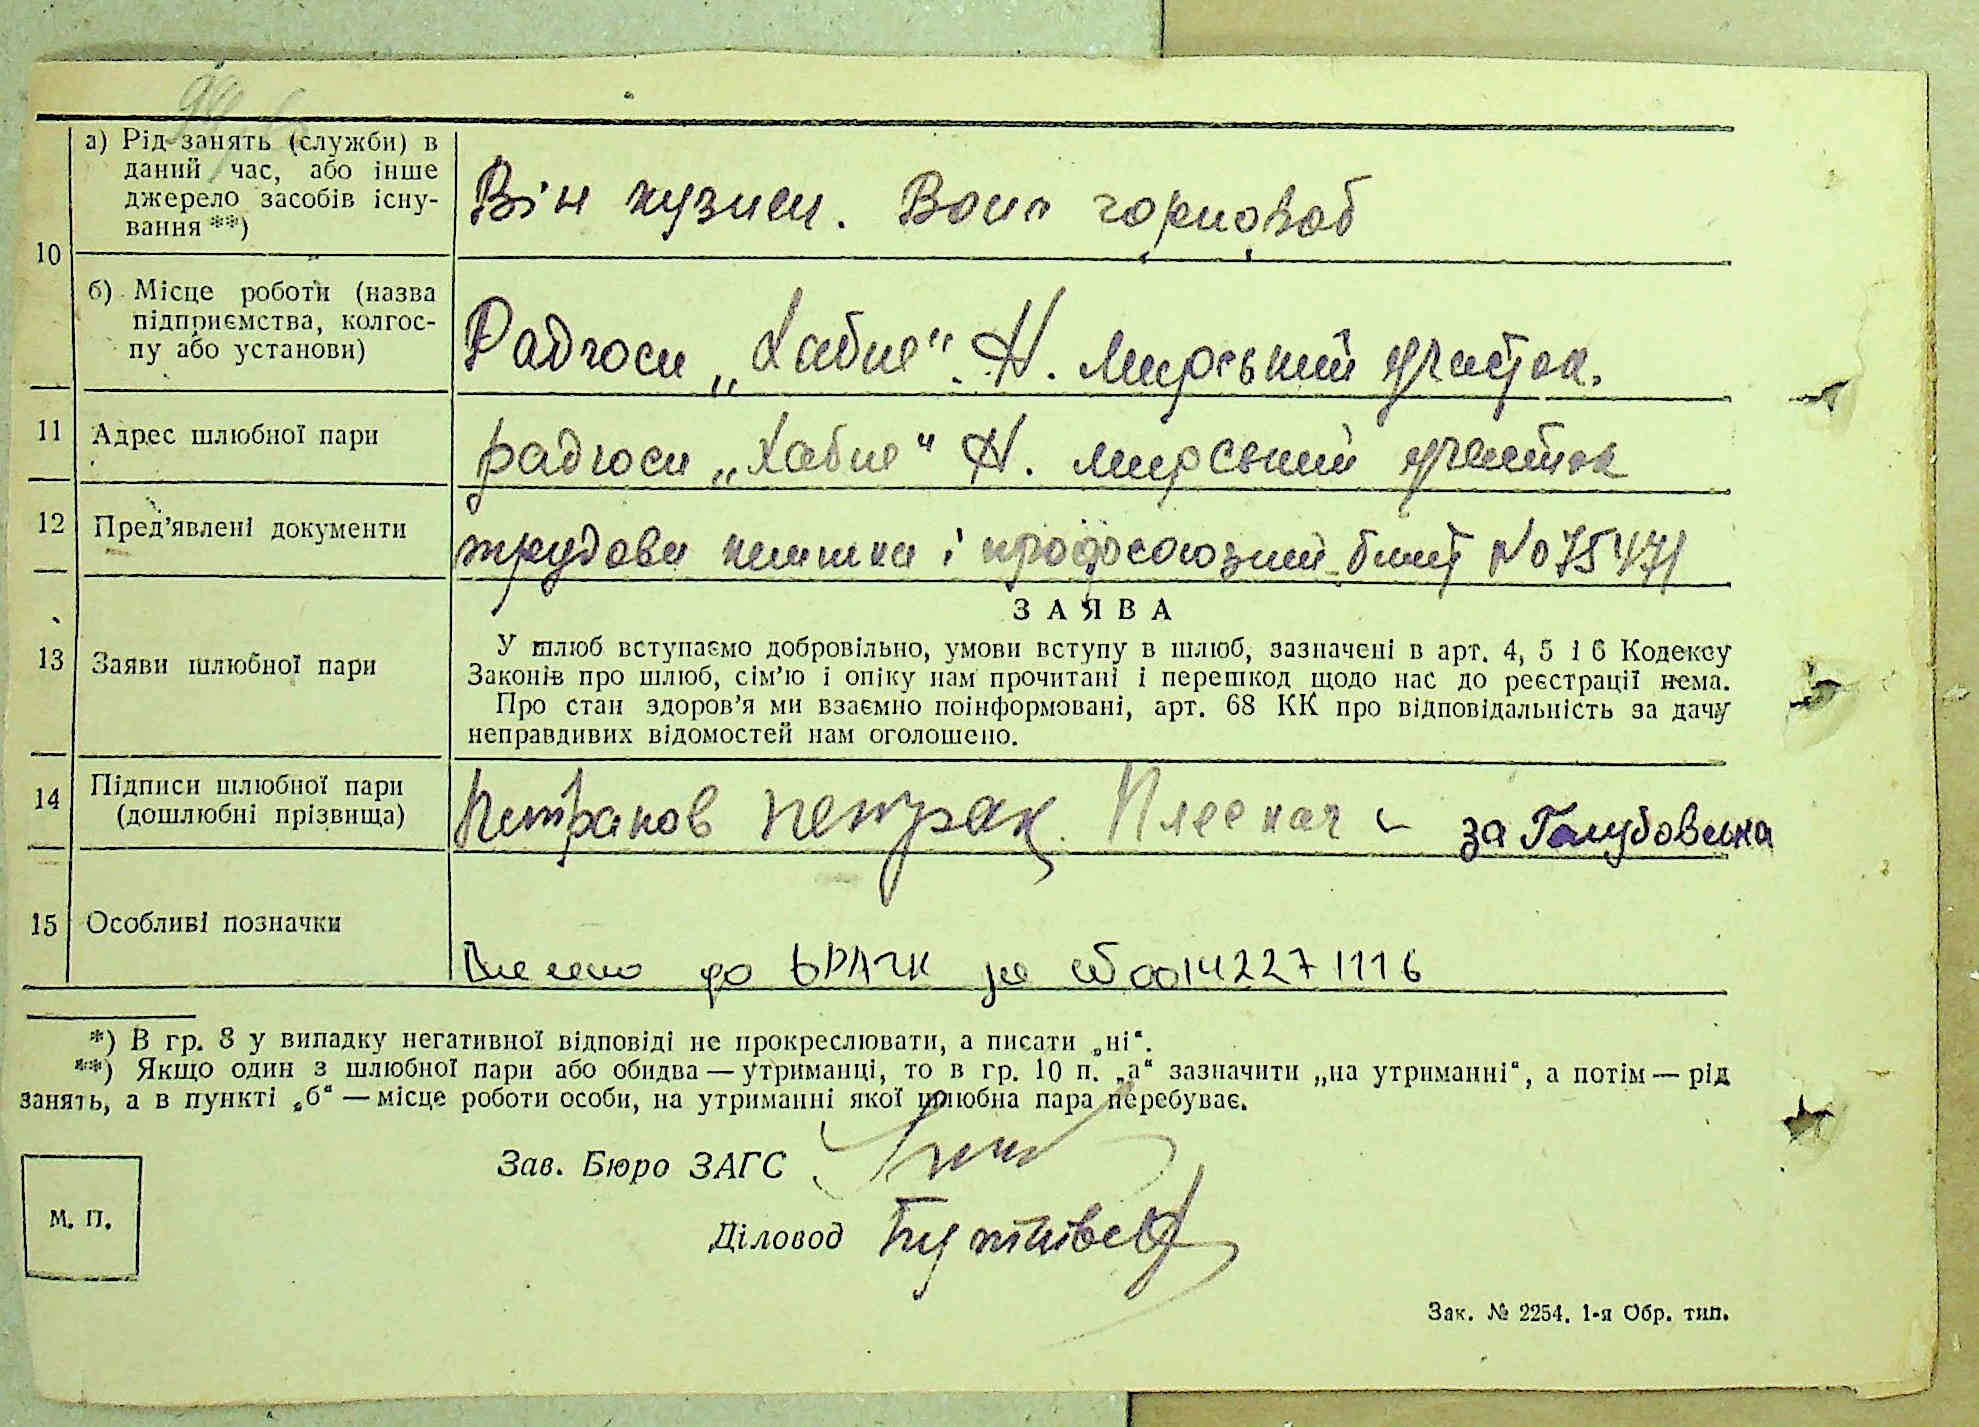 а) Рід занять (службы) в
даний час, або інше
джерело засобів існу-
вання **)
Він кузнец. Вона чорнораб
10
б) Місце роботи (назва
підприємства, колгос-
пу або установи)
Радгосп „Хабне". Н. мирський участок.
11 Адрес шлюбної пари
радгосп „Хабне" Н. мирський участок
12 Пред'явлені документи
трудова книжка і профсоюзний білет № 075471
ЗАЯВА
13 Заяви шлюбної пари
У шлюб вступаємо добровільно, умови вступу в шлюб, зазначені в арт. 4, 5 і 6 Кодексу
Законів про шлюб, сім'ю і опіку нам прочитані і перешкод щодо нас до реєстрації нема.
Про стан здоров'я ми взаємно поінформовані, арт. 68 КК про відповідальність за дачу
неправдивих відомостей нам оголошено.
14 Підписи шлюбної пари
(дошлюбні прізвища)
Плескач за Голубовська
15 Особливі позначки
Внесено до ДРАЦС за 00142271116
*) В гр. 8 у випадку негативної відповіді не прокреслювати, а писати „ні".
**) Якщо один з шлюбної пари або обидва — утриманці, то в гр. 10 п. „а" зазначити „на утриманні", а потім — рід
занять, а в пункті „б" — місце роботи особи, на утриманні якої шлюбна пара перебуває.
Зав. Бюро ЗАГС
М. П.
Діловод
Зак. № 2254. 1-я Обр. тип.